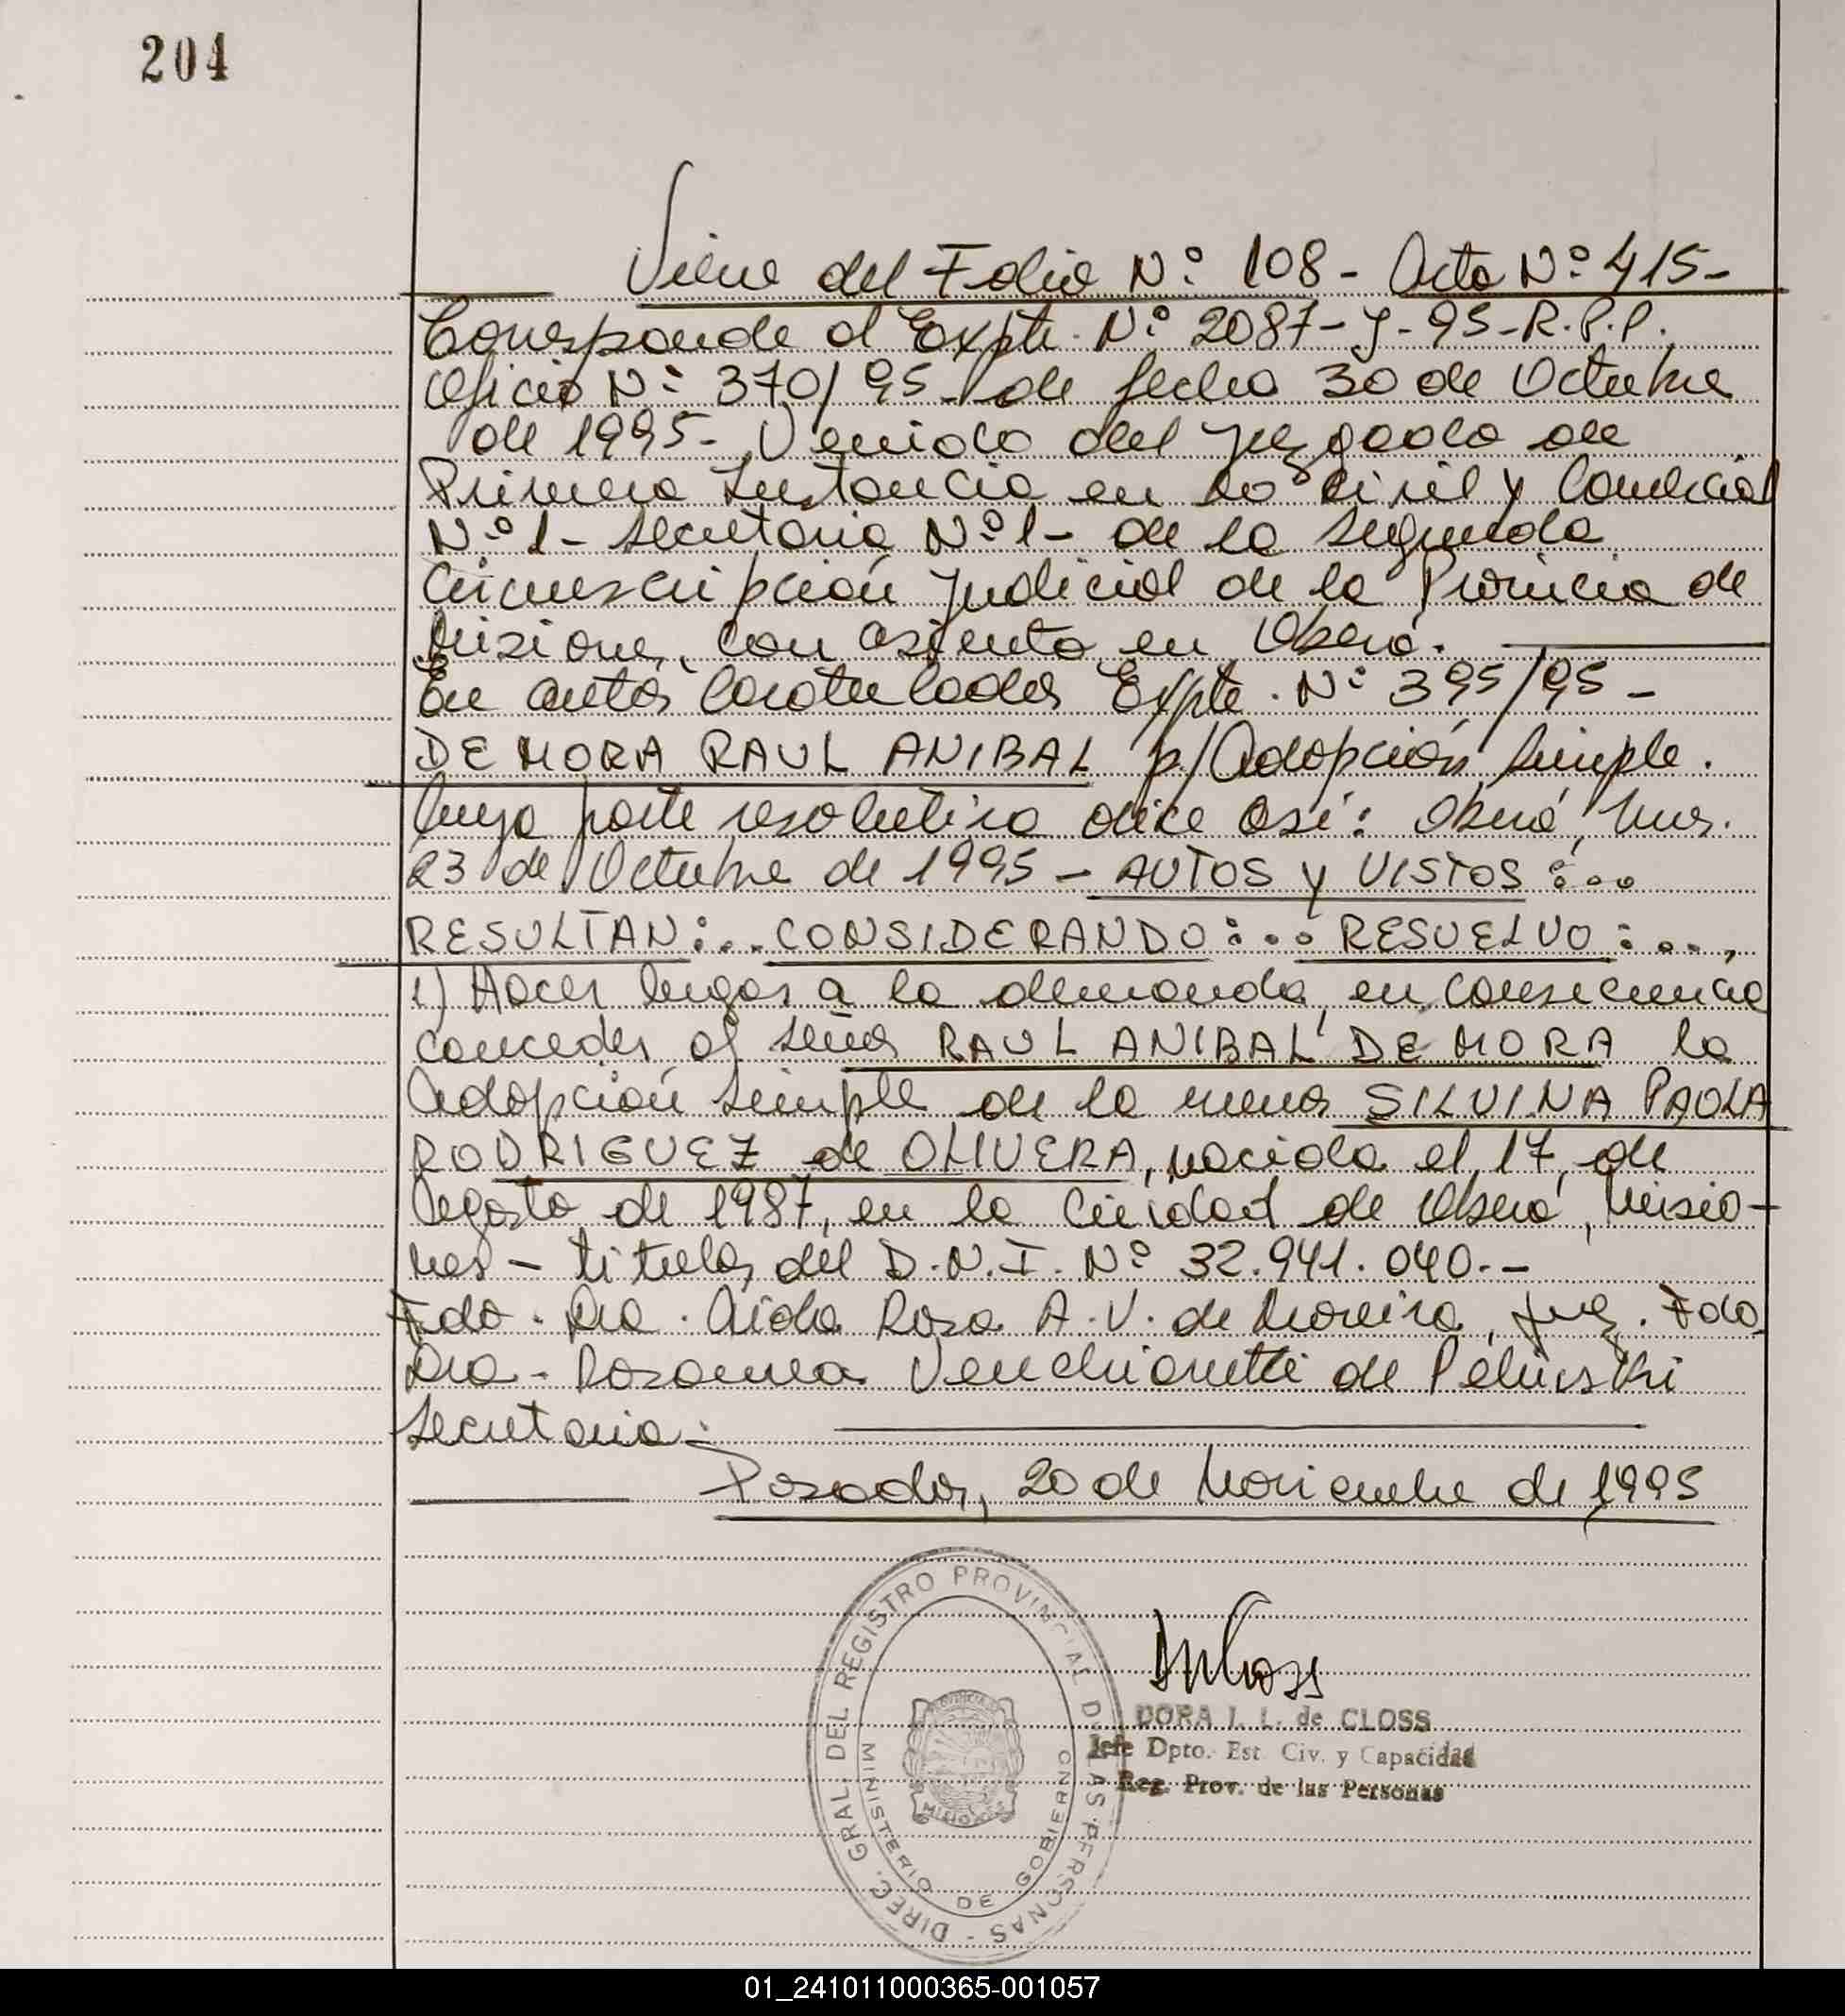 204
Viene del Folio Nº 108 - Acta Nº 415-
Corresponde al Expte. Nº 2087-J-95-R.P.P.
Oficio Nº 370/95 - de fecha 30 de Octubre
de 1995- Venido del Juzgado de
Primera Instancia en lo Civil y Comercial
Nº 1 - Secretaria Nº 1 - de la Segunda
Circunscripción Judicial de la Provincia de
Misiones, con asiento en Oberá.
En autos Caratulados Expte. Nº 395/95 -
DE MORA RAUL ANIBAL p/ Adopción Simple.
Cuya parte resolutiva dice así: Oberá, Mnes.
23 de Octubre de 1995 - AUTOS y VISTOS:...
RESULTAN:... CONSIDERANDO:... RESUELVO:...,
1) Hacer lugar a la demanda, en consecuencia
conceder al señor RAUL ANIBAL DE MORA la
adopción simple de la menor SILVINA PAOLA
RODRIGUEZ de OLIVERA, nacida el 17 de
Agosto de 1987, en la Ciudad de Oberá, Misio-
nes - titular del D.N.I. Nº 32.941.040.-
Fdo. Dra. Aida Rosa A.V. de Moreira, Juez. Fdo
Dra. Rosanna Venchiarutti de
Secretaria.-
Posadas, 20 de Noviembre de 1995
DIREC. GRAL DEL REGISTRO PROVINCIAL DE LAS PERSONAS -
MINISTERIO DE GOBIERNO
PROVINCIA DE
MISIONES
DORA I. L. de CLOSS
Jefe Dpto. Est. Civ. y Capacidad
Reg. Prov. de las Personas
01_241011000365-001057